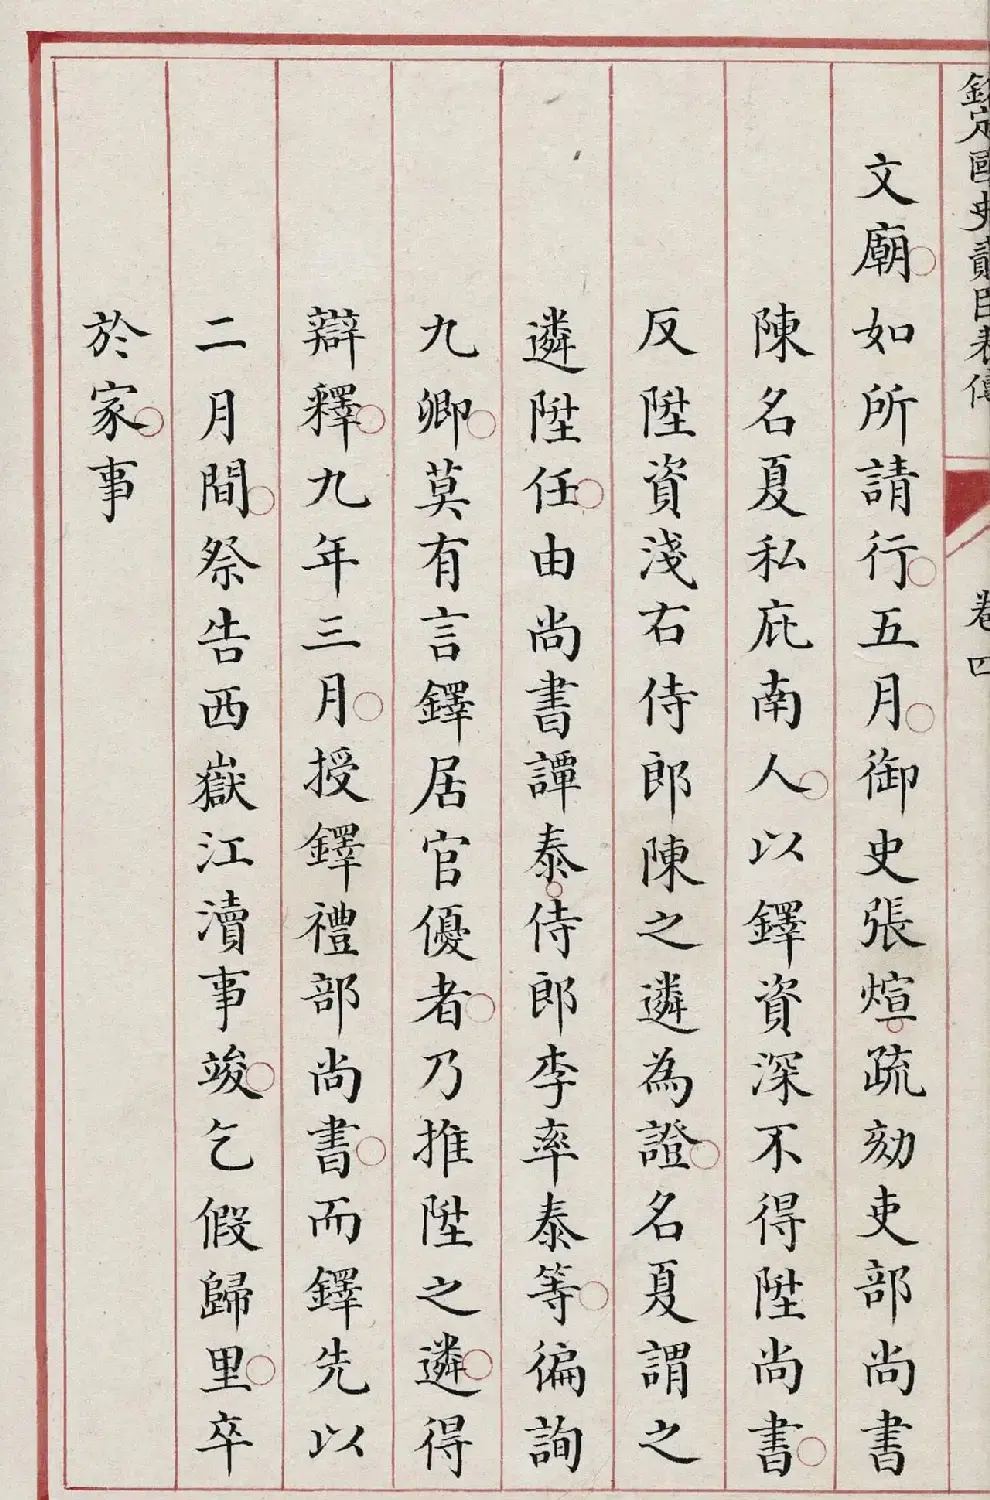 欽定國史貳臣表傳 卷四
文廟如所請行五月御史張煊疏劾吏部尚書
陳名夏私庇南人以鐸資深不得陞尚書
反陞資淺右侍郎陳之遴為證名夏謂之
遴陞任由尚書譚泰侍郎李率泰等徧詢
九卿莫有言鐸居官優者乃推陞之遴得
辯釋九年三月授鐸禮部尚書而鐸先以
二月間祭告西嶽江瀆事竣乞假歸里卒
於家事